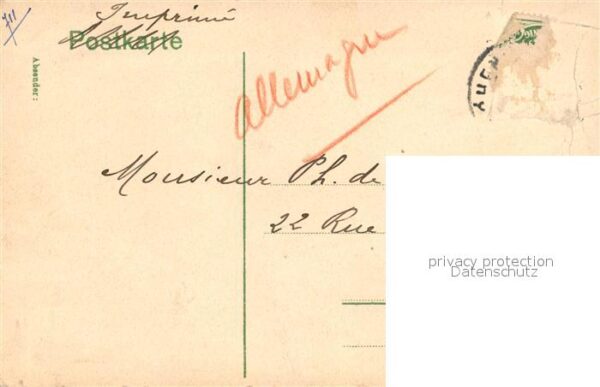 Imprimé
Postkarte
Absender:
711
Allemagne
Monsieur Ph. de
22 Rue
privacy protection
Datenschutz